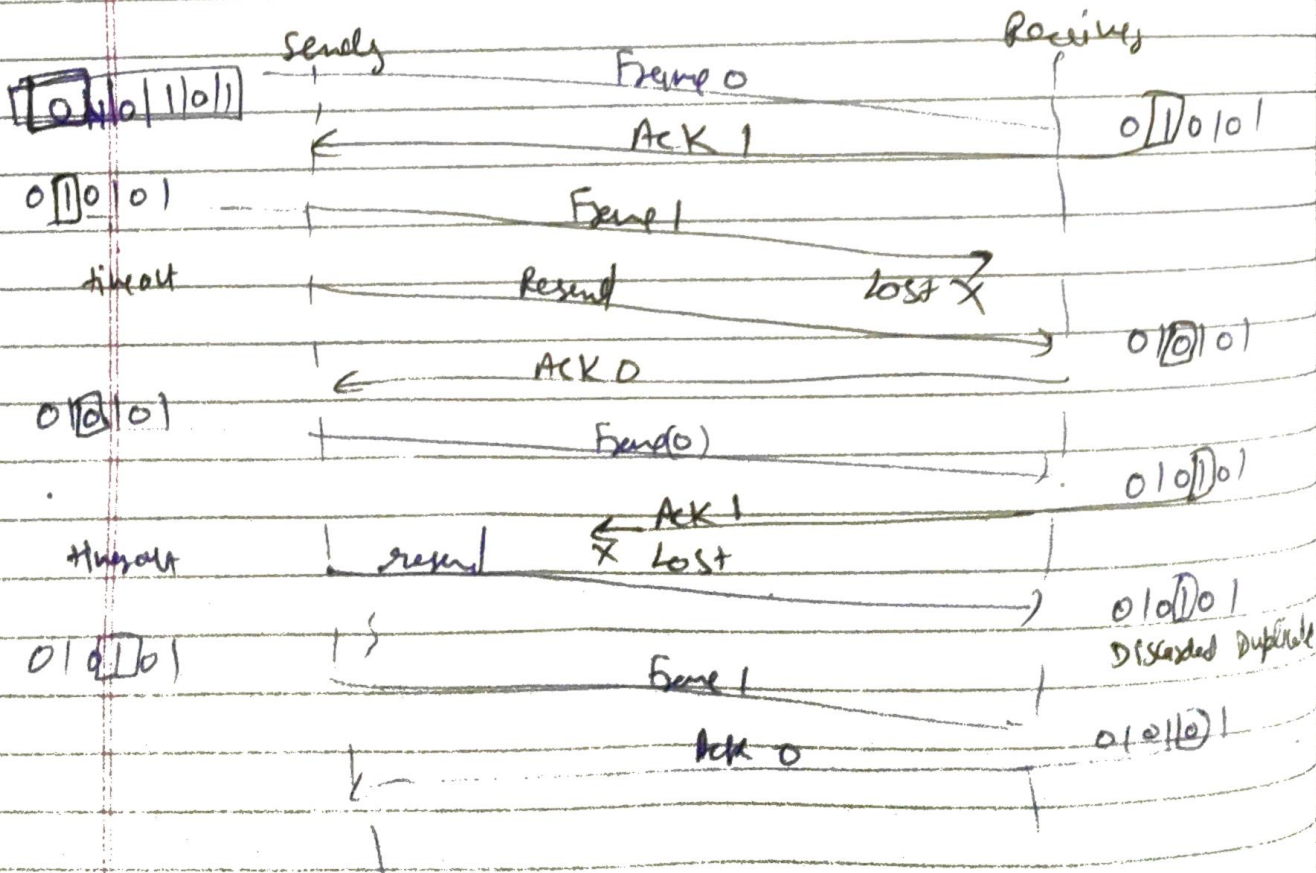 Sender Receiver
0 1 0 1 0 1 Frame 0
ACK 1 0 1 0 1 0 1
0 1 0 1 0 1 Frame 1
timeout Resend Lost X
0 1 0 1 0 1
ACK 0
0 1 0 1 0 1 Frame(0)
0 1 0 1 0 1
ACK 1
timeout resend X Lost
0 1 0 1 0 1
Discarded Duplicate
0 1 0 1 0 1 Frame 1
ACK 0 0 1 0 1 0 1